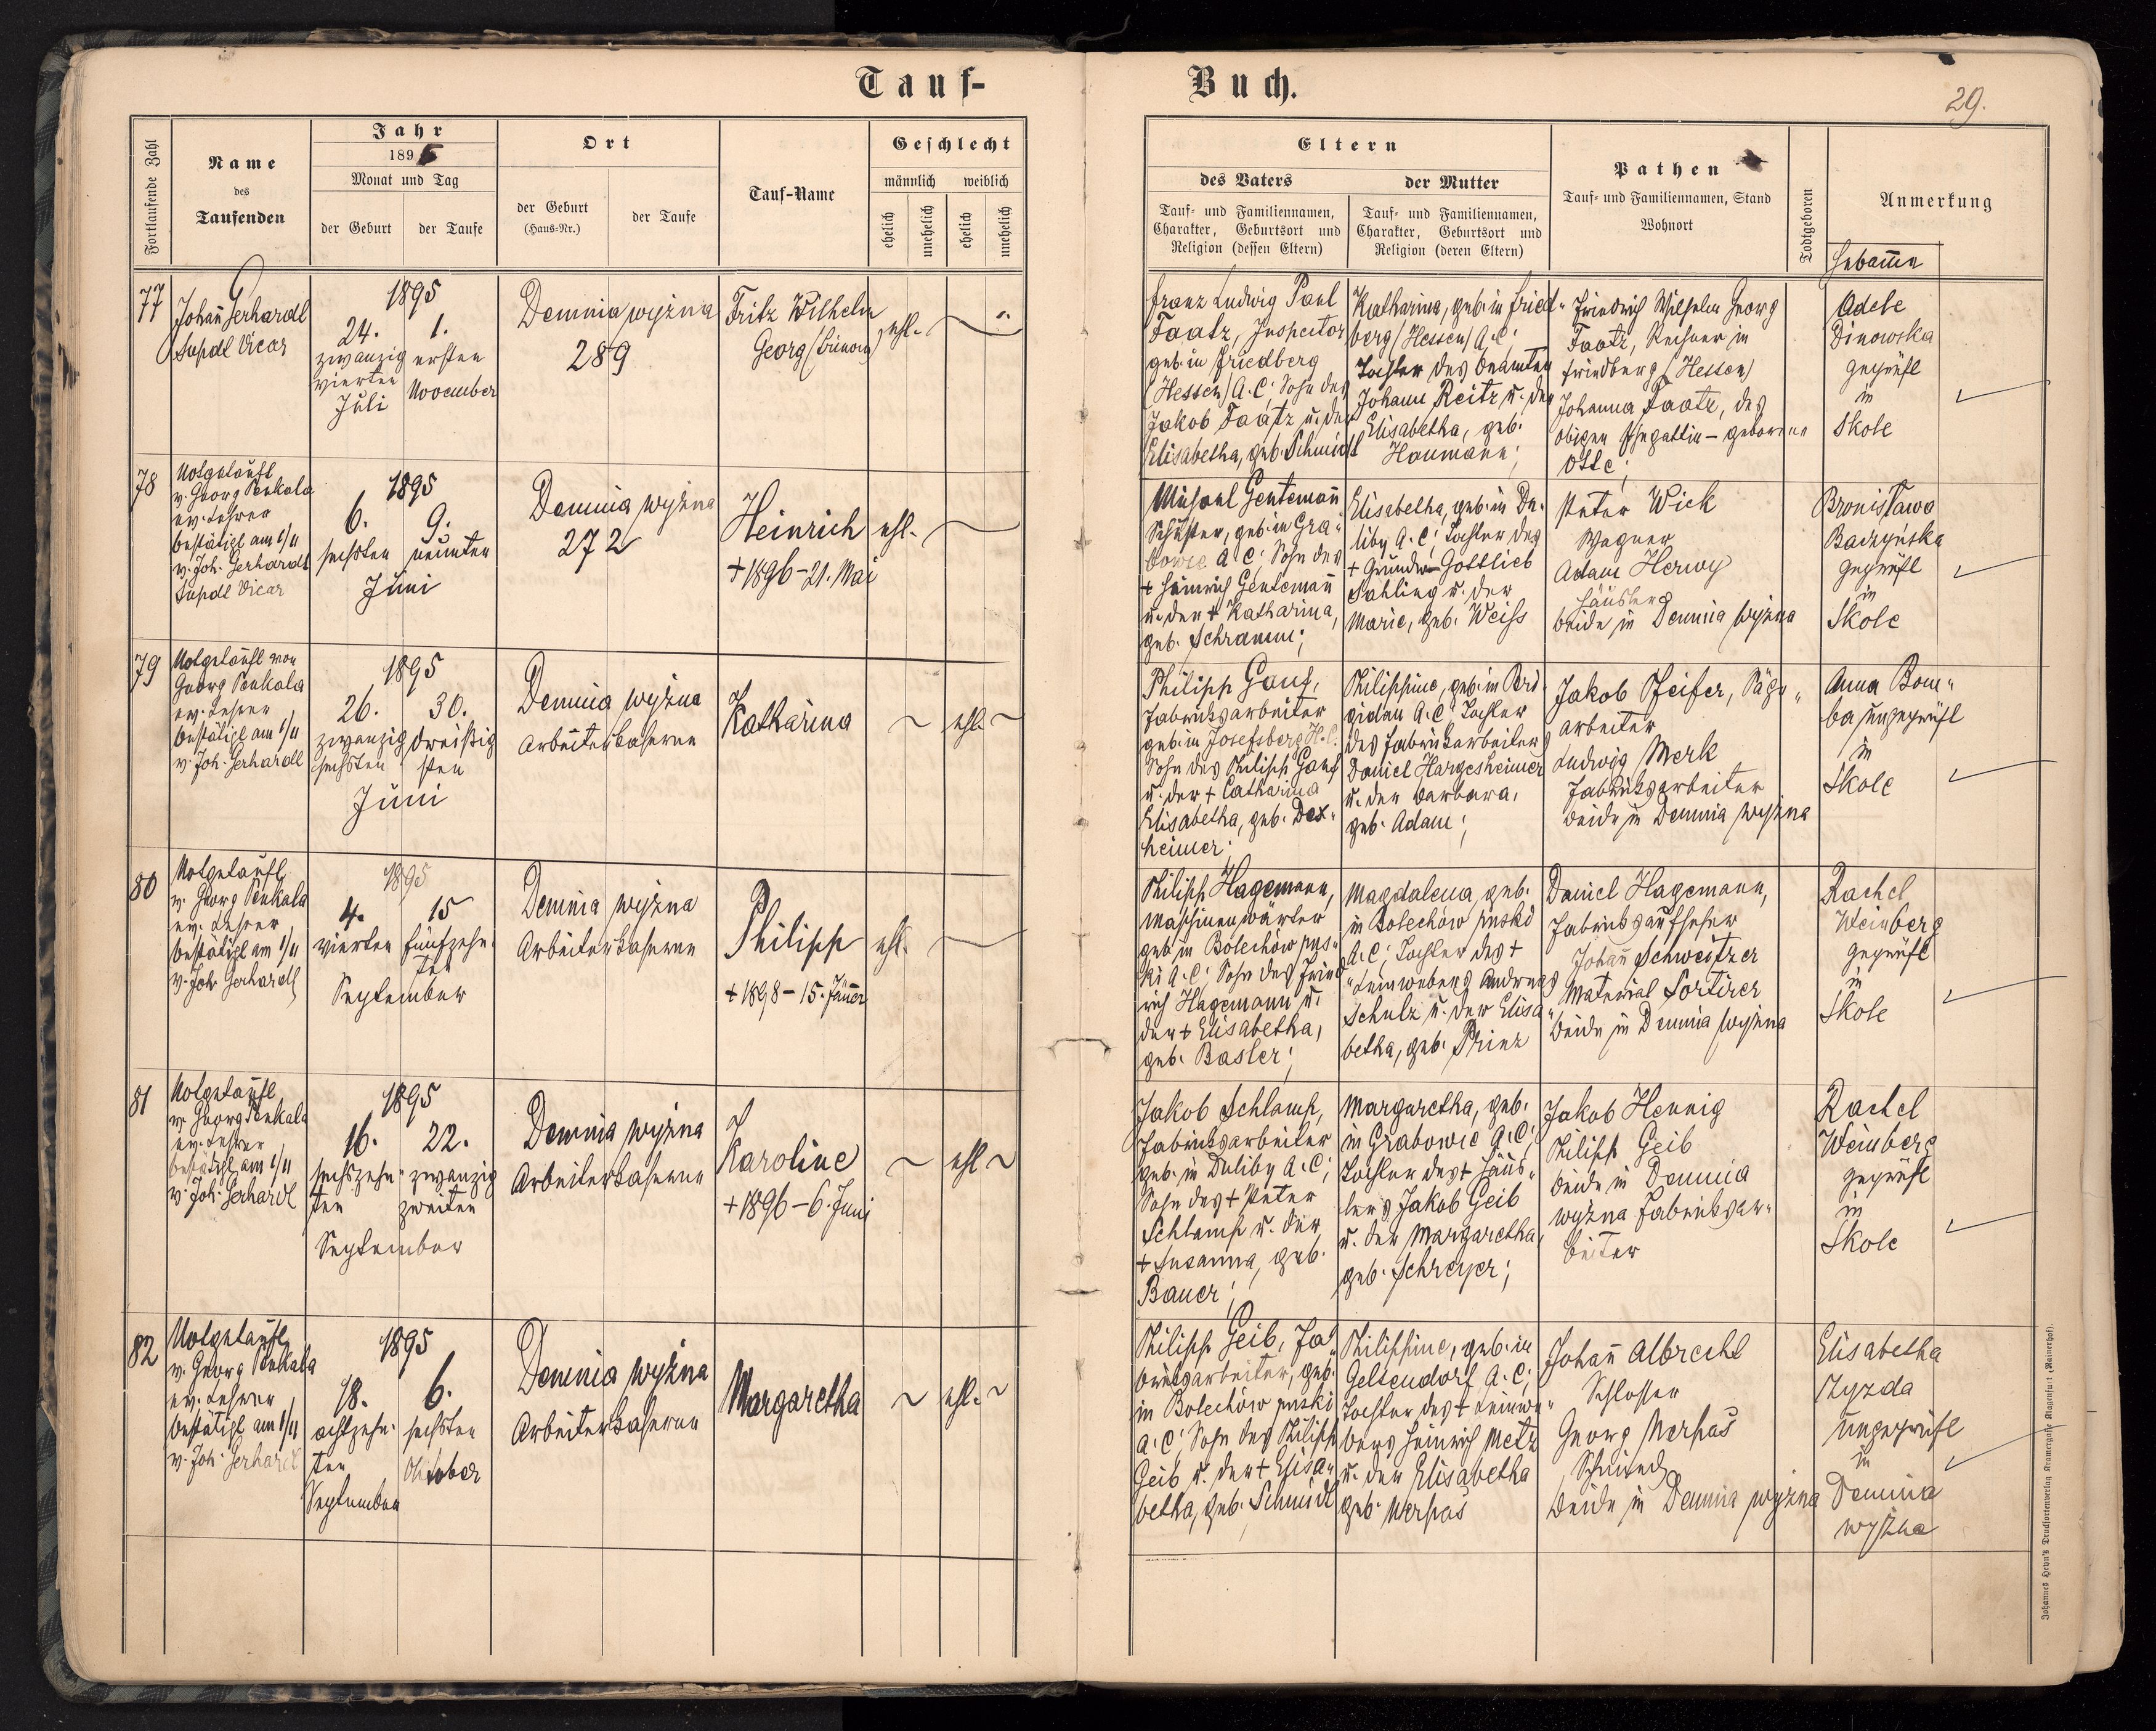 Tauf-
Buch.
29.
Fortlaufende Zahl
Name
des
Taufenden
Jahr
1895
Monat und Tag
der Geburt
der Taufe
Ort
der Geburt
(Haus-Nr.)
der Taufe
Tauf-Name
Geschlecht
männlich
weiblich
ehelich
unehelich
ehelich
unehelich
Eltern
des Vaters
Tauf- und Familiennamen,
Charakter, Geburtsort und
Religion (dessen Eltern)
der Mutter
Tauf- und Familiennamen,
Charakter, Geburtsort und
Religion (deren Eltern)
Pathen
Tauf- und Familiennamen, Stand
Wohnort
Todtgeboren
Anmerkung
Hebamme
77
Johan̄ Gerhardt
Supdl Vicar
1895
24.
zwanzig
vierten
Juli
1.
ersten
November
Demnia wyżna
289
Fritz Wilhelm
Georg
ehl.
Franz Ludwig Paul
Faatz, Inspector
geb. in Friedberg
(Hessen) A.C; Sohn des
Jakob Faatz u. der
Elisabetha, geb. Schmidt
Katharina, geb. in Fried-
berg (Hessen) A.C;
Tochter des Beamten
Johann Reitz u. der
Elisabetha, geb.
Haumann;
Friedrich Wilhelm Georg
Faatz, Rechner in
Friedberg (Hessen)
Johanna Faatz, des
obigen Ehegattin - geborene
Otte;
Adele
Dinowska
geprüft
in
Skole
78
Notgetauft
v. Georg Penkala
ev. Lehrer
bestätigt am 1/11
v. Joh. Gerhardt
Supdl Vicar
1895
6.
sechsten
9.
neunten
Juni
Demnia wyżna
272
Heinrich
+ 1896 - 21. Mai
ehl.
Michael Genteman̄
Schuster, geb. in Gra-
bowce A.C; Sohn des
+ Heinrich Genteman̄
u. der + Katharina,
geb. Schramm;
Elisabetha, geb. in Du-
liby A.C; Tochter des
+ Grundw. Gottlieb
Sahling u. der
Marie, geb. Weiss
Peter Wick
Wagner
Adam Herwy
Häusler
beide in Demnia wyżna
Bronisława
Baczyńska
geprüft
in
Skole
79
Notgetauft von
Georg Penkala
ev. Lehrer
bestätigt am 1/11
v. Joh. Gerhardt
1895
26.
zwanzig
sechsten
30.
dreißig
sten
Juni
Demnia wyżna
Arbeiterkaserne
Katharina
ehl.
Philipp Gauf,
Fabriksarbeiter
geb. in Josefsberg H.C.
Sohn des Philipp Gauf
u. der + Catharina
Elisabetha, geb. Dex-
heimer;
Philippine, geb. in Bri-
gidau A.C Tochter
des Fabriksarbeiters
Daniel Hargesheimer
u. der Barbara,
geb. Adam;
Jakob Pfeifer, Säge-
arbeiter
Ludwig Merk
Fabriksarbeiter
beide in Demnia wyżna
Anna Bom-
ba, ungeprüft
in
Skole
80
Notgetauft
v. Georg Penkala
ev. Lehrer
bestätigt am 1/11
v. Joh. Gerhardt
1895
4.
vierten
15
fünfzehn-
ten
September
Demnia wyżna
Arbeiterkaserne
Philipp
+ 1898 - 15. Jänner
ehl.
Philipp Hagemann,
Maschinenwärter
geb. in Bolechów rus-
ki A.C; Sohn des Fried-
rich Hagemann u.
der + Elisabetha,
geb. Basler;
Magdalena, geb.
in Bolechów ruski
A.C; Tochter des +
Leinwebers Andreas
Schulz u. der Elisa-
betha, geb. Prinz
Daniel Hagemann,
Fabriksaufseher
Johan̄ Schweitzer
Material Sortirer
beide in Demnia wyżna
Rachel
Weinberg
geprüft
in
Skole
81
Notgetauft
v. Georg Penkala
ev. Lehrer
bestätigt am 1/11
v. Joh. Gerhardt
1895
16.
sechszehn-
ten
22.
zwanzig
zweiten
September
Demnia wyżna
Arbeiterkaserne
Karoline
+ 1896 - 6. Juni
ehl
Jakob Schlamp,
Fabriksarbeiter
geb. in Duliby A.C;
Sohn des + Peter
Schlamp u. der
+ Susanna, geb.
Bauer;
Margaretha, geb.
in Grabowce A.C;
Tochter des + Häus-
lers Jakob Geib
u. der Margaretha,
geb. Schreyer;
Jakob Hennig
Philipp Geib
beide in Demnia
wyżna Fabriksar-
beiter
Rachel
Weinberg
geprüft
in
Skole
82
Notgetauft
v. Georg Penkala
ev. Lehrer
bestätigt am 1/11
v. Joh. Gerhardt
1895
18.
achtzehn-
ten
September
6.
sechsten
Oktober
Demnia wyżna
Arbeiterkaserne
Margaretha
ehl.
Philipp Geib, Fa-
briksarbeiter, geb.
in Bolechów ruski
A.C; Sohn des Philipp
Geib u. der + Elisa-
betha, geb. Schmidt
Philippine, geb. in
Gelsendorf A.C;
Tochter des + Leinwe-
bers Heinrich Metz
u. der Elisabetha
geb. Merhas
Johan̄ Albrecht
Schlosser
Georg Merhas
Schmied
beide in Demnia wyżna
Elisabetha
Zyzda
ungeprüft
in
Demnia
wyżna
Johannes Heyn's Drucksortenverlag Kramergasse Klagenfurt (Rainerhof).